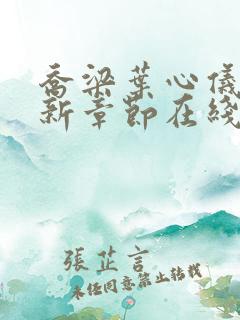 喬梁葉心儀
新章節在綫
張芷言
未经同意禁止转载